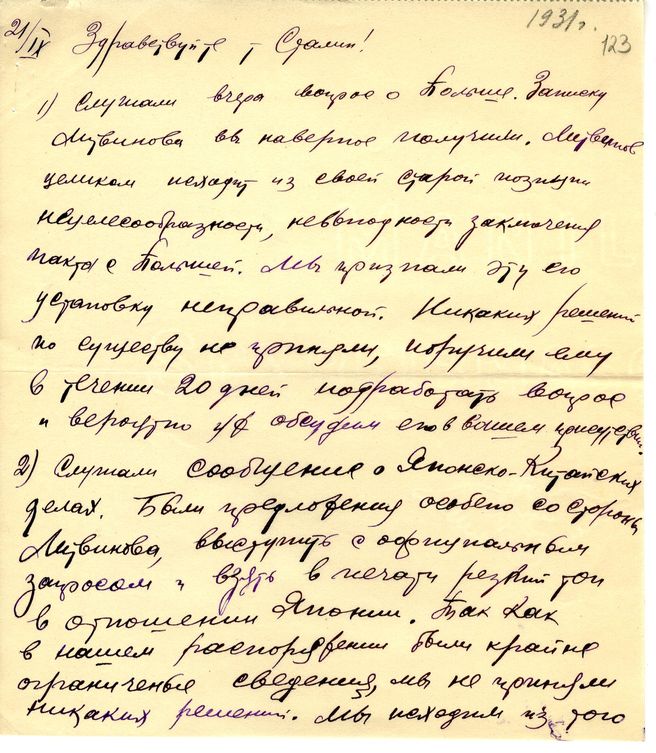 1931г.
123
21/IX Здравствуйте т Сталин!
1) Слушали вчера вопрос о Польше. Записку
Литвинова вы наверное получили. Литвинов
целиком исходит из своей старой позиции
нецелесообразности, невыгодности заключения
пакта с Польшей. Мы признали эту его
установку неправильной. Никаких решений
по существу не приняли, поручили ему
в течении 20 дней подработать вопрос
и вероятно уж обсудим его в вашем присутствии.
2) Слушали сообщение о Японско-Китайских
делах. Были предложения особено со стороны
Литвинова, выступить с официальным
запросом и взять в печати резкий тон
в отношении Японии. Так как
в нашем распоряжении были крайне
ограниченые сведения, мы не приняли
никаких решений. Мы исходим из того